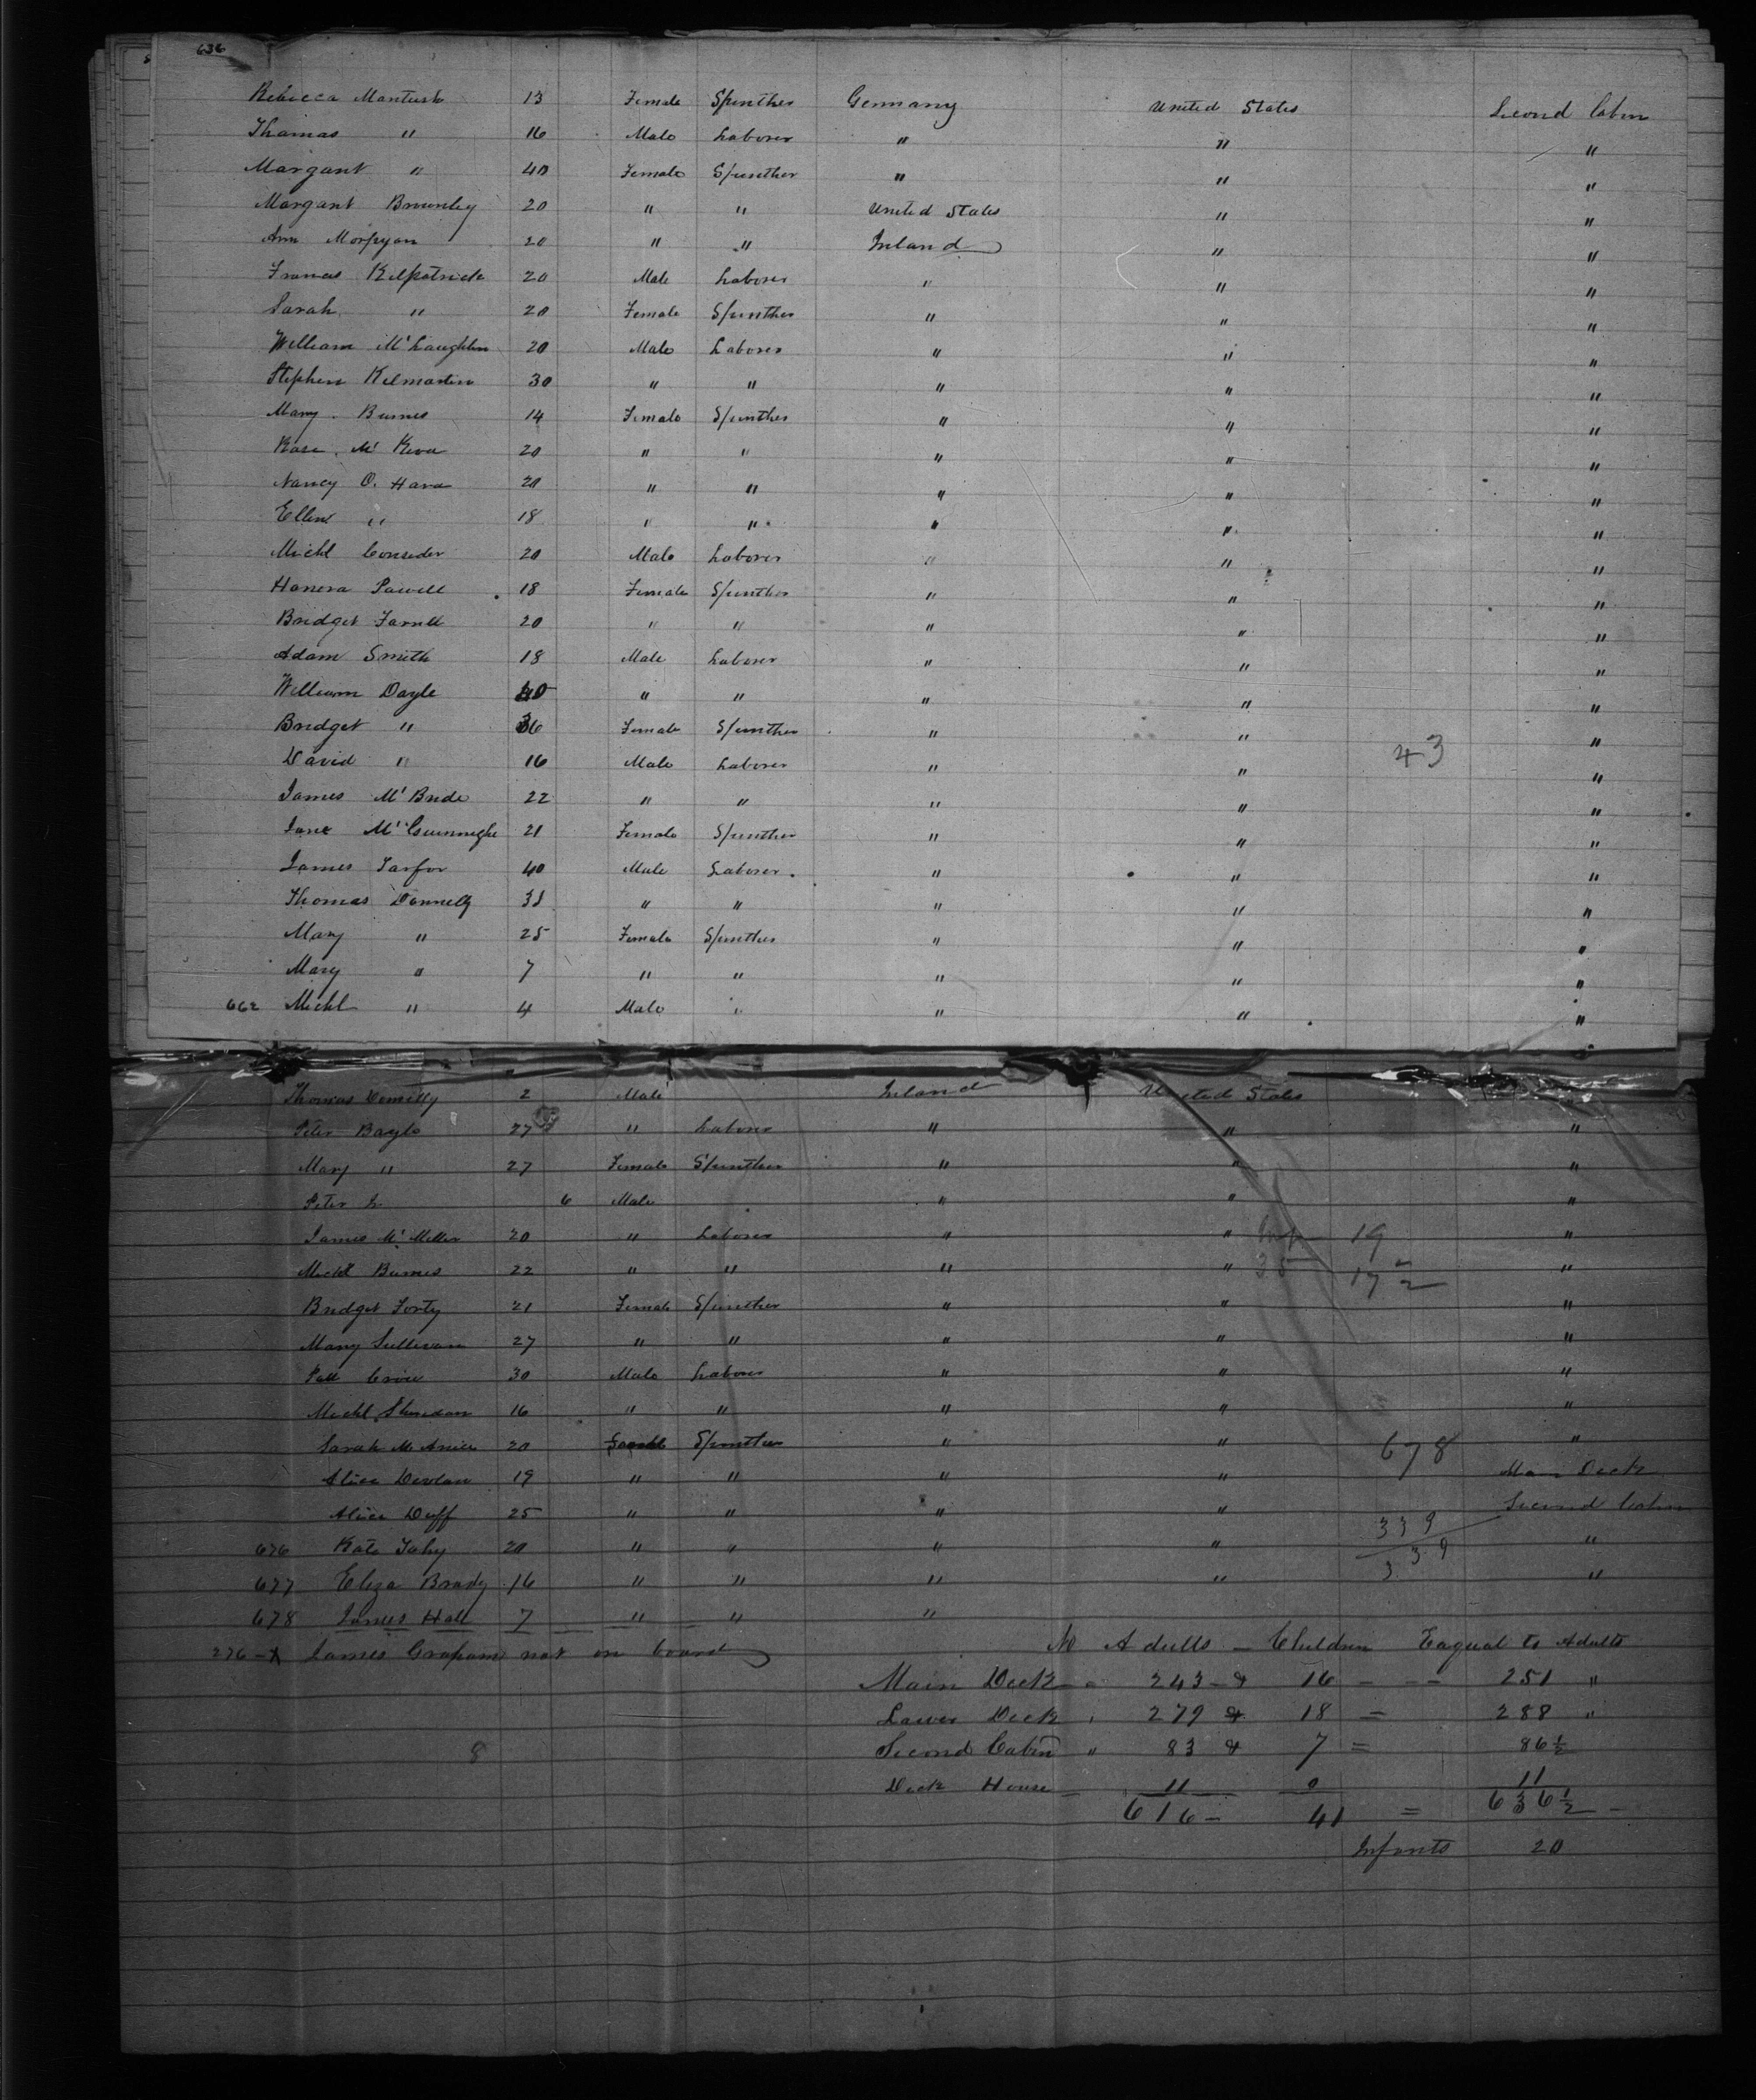 636
Rebecca Manturk 13 Female Spinther Germany United States Second Cabin
Thomas " 16 Male Laborer " " "
Margant " 40 Female Spinther " " "
Margant Brownley 20 " " United States " "
Ann Morpyan 20 " " Ireland " "
Frances Kilpatrick 20 Male Laborer " " "
Sarah " 20 Female Spinther " " "
William Mc Laughlin 20 Male Laborer " " "
Stephen Kilmartin 30 " " " " "
Mary Burnes 14 Female Spinther " " "
Rose Mc 20 " " " " "
Nancy O. Hara 20 " " " " "
Ellen " 18 " " " " "
Michl Consider 20 Male Laborer " " "
Hanera Powell 18 Female Spinther " " "
Bridget Farrell 20 " " " " "
Adam Smith 18 Male Laborer " " "
William Doyle 40 " " " " "
Bridget " 36 Female Spinther " " "
David " 16 Male Laborer " " 43 "
James Mc Bride 22 " " " " "
Jane 21 Female Spinther " " "
James 40 Male Laborer " " "
Thomas Donnelly " " " " "
Mary " 25 Female Spinther " " "
Mary " 7 " " " " "
662 Michl " 4 Male " " " "
Thomas Donnelly 2 Male Ireland United States "
Peter Bayle 27 " Laborer " " "
Mary " 27 Female Spinther " " "
Peter 6 Male " " "
James Mc Miller 20 " Laborer " " 19 "
Michl Burnes 22 " " " " 35 17 "
Bridget Forty 21 Female Spinther " " "
Mary Sullivan 27 " " " " "
Patt Crow 30 Male Laborer " " "
Michl Sheridan 16 " " " " "
Sarah Mc 20 Spinther " " 678 "
Alice Devlan 19 " " " " Main Deck
Alice Duff 25 " " " " Second Cabin
676 Kate Fahy 20 " " " " 339 "
677 Eliza Brady 16 " " " " "
678 James Hall 7 " " "
276 James Grapam not on board No Adults - Children Eaqual to Adults
Main Deck " 243 & 16 - - - 251 "
Lower Deck " 279 & 18 = 288 "
8 Second Cabin " 83 & 7 = 86 1/2
Deck House - 11 0 11
616 - 41 = 636 1/2 -
Infants 20